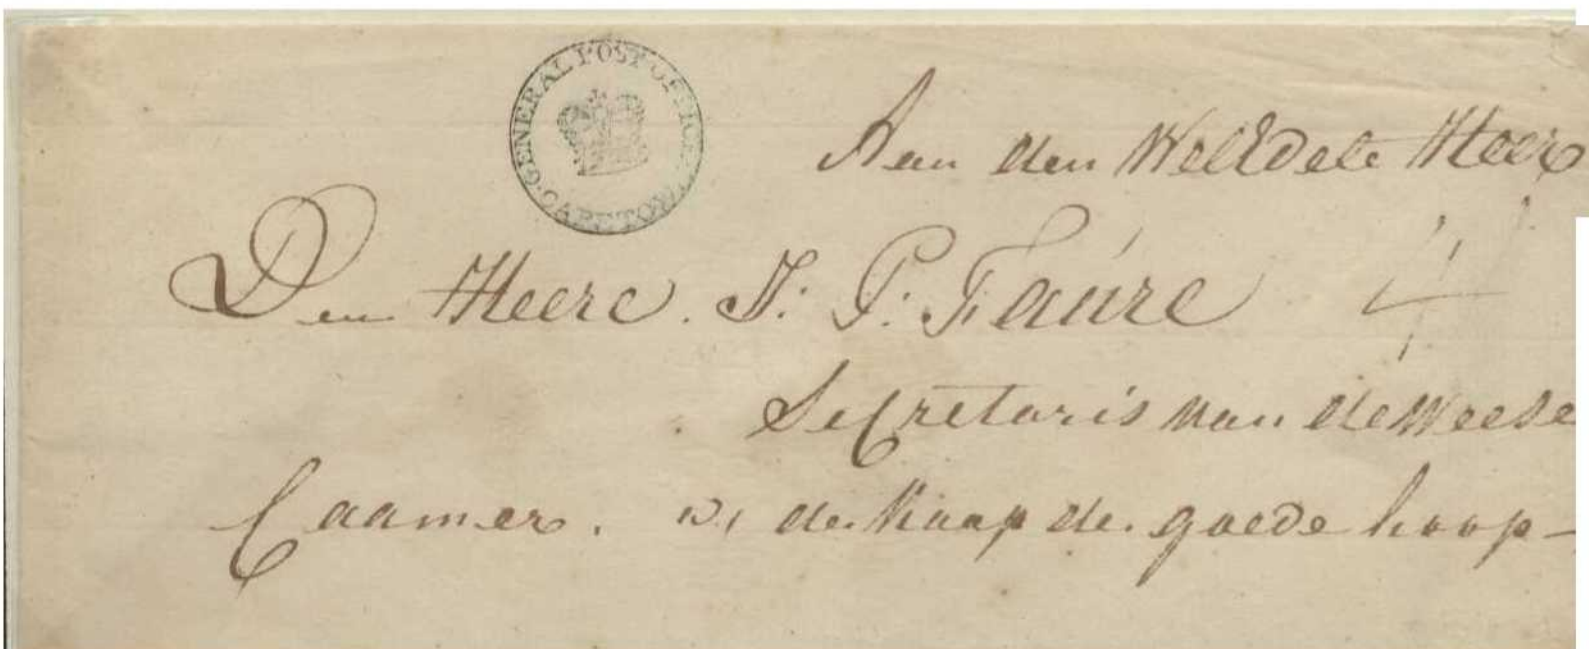 GENERAL POST OFFICE CAPE TOWN
Aan den WelEdele Heer
Den Heere. J: P: Faure
4
Secretaris van de Weese
Caamer. de Kaap de goede hoop-